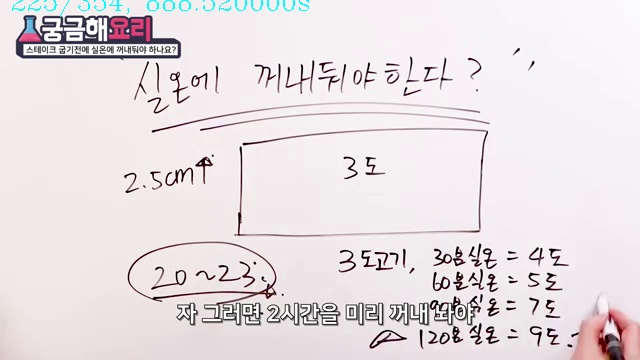 225/354, 888.520000s
궁금해요리
스테이크 굽기전에 실온에 꺼내둬야 하나요?
실온에 꺼내둬야한다?
2.5cm↑
3도
20~23도
3도고기, 30분실온 = 4도
60분실온 = 5도
90분실온 = 7도
120분실온 = 9도
자 그러면 2시간을 미리 꺼내 놔야